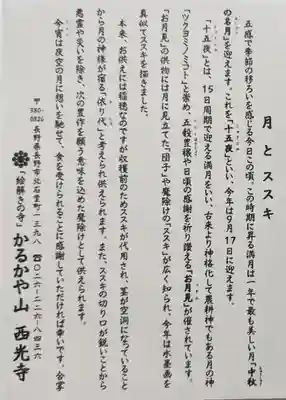 月とススキ
五感で季節の移ろいを感じる今日この頃。この時期に昇る満月は一年で最も美しい月「中秋
の名月」を迎えます。これを「十五夜」といい、今年は9月17日に迎えます。
「十五夜」とは、15日周期で迎える満月をいい、古来より神格化して農耕神でもある月の神
「ツクヨミノミコト」と崇め、五穀豊穣や日頃の感謝を祈り讃える「お月見」が催されています。
「お月見」の供物には月に見立てた「団子」や魔除けの「ススキ」が広く知られ、今年は水墨画を
真似てススキを描きました。
本来、お供えには稲穂なのですが収穫前のためススキが代用され、茎が空洞になっていること
から月の神様が宿る「依り代」と考えられ供えられます。また、ススキの切り口が鋭いことから
悪霊や災いを除き、次の豊作を願う意味を込めた魔除けとして供えられます。
今宵は夜空の月に想いを馳せて、食を受けられることに感謝していただければ幸いです。合掌
〒380-0826 長野県長野市北石堂町一三九八 ☎〇二六-二二六-八四三六
「絵解きの寺」かるかや山 西光寺